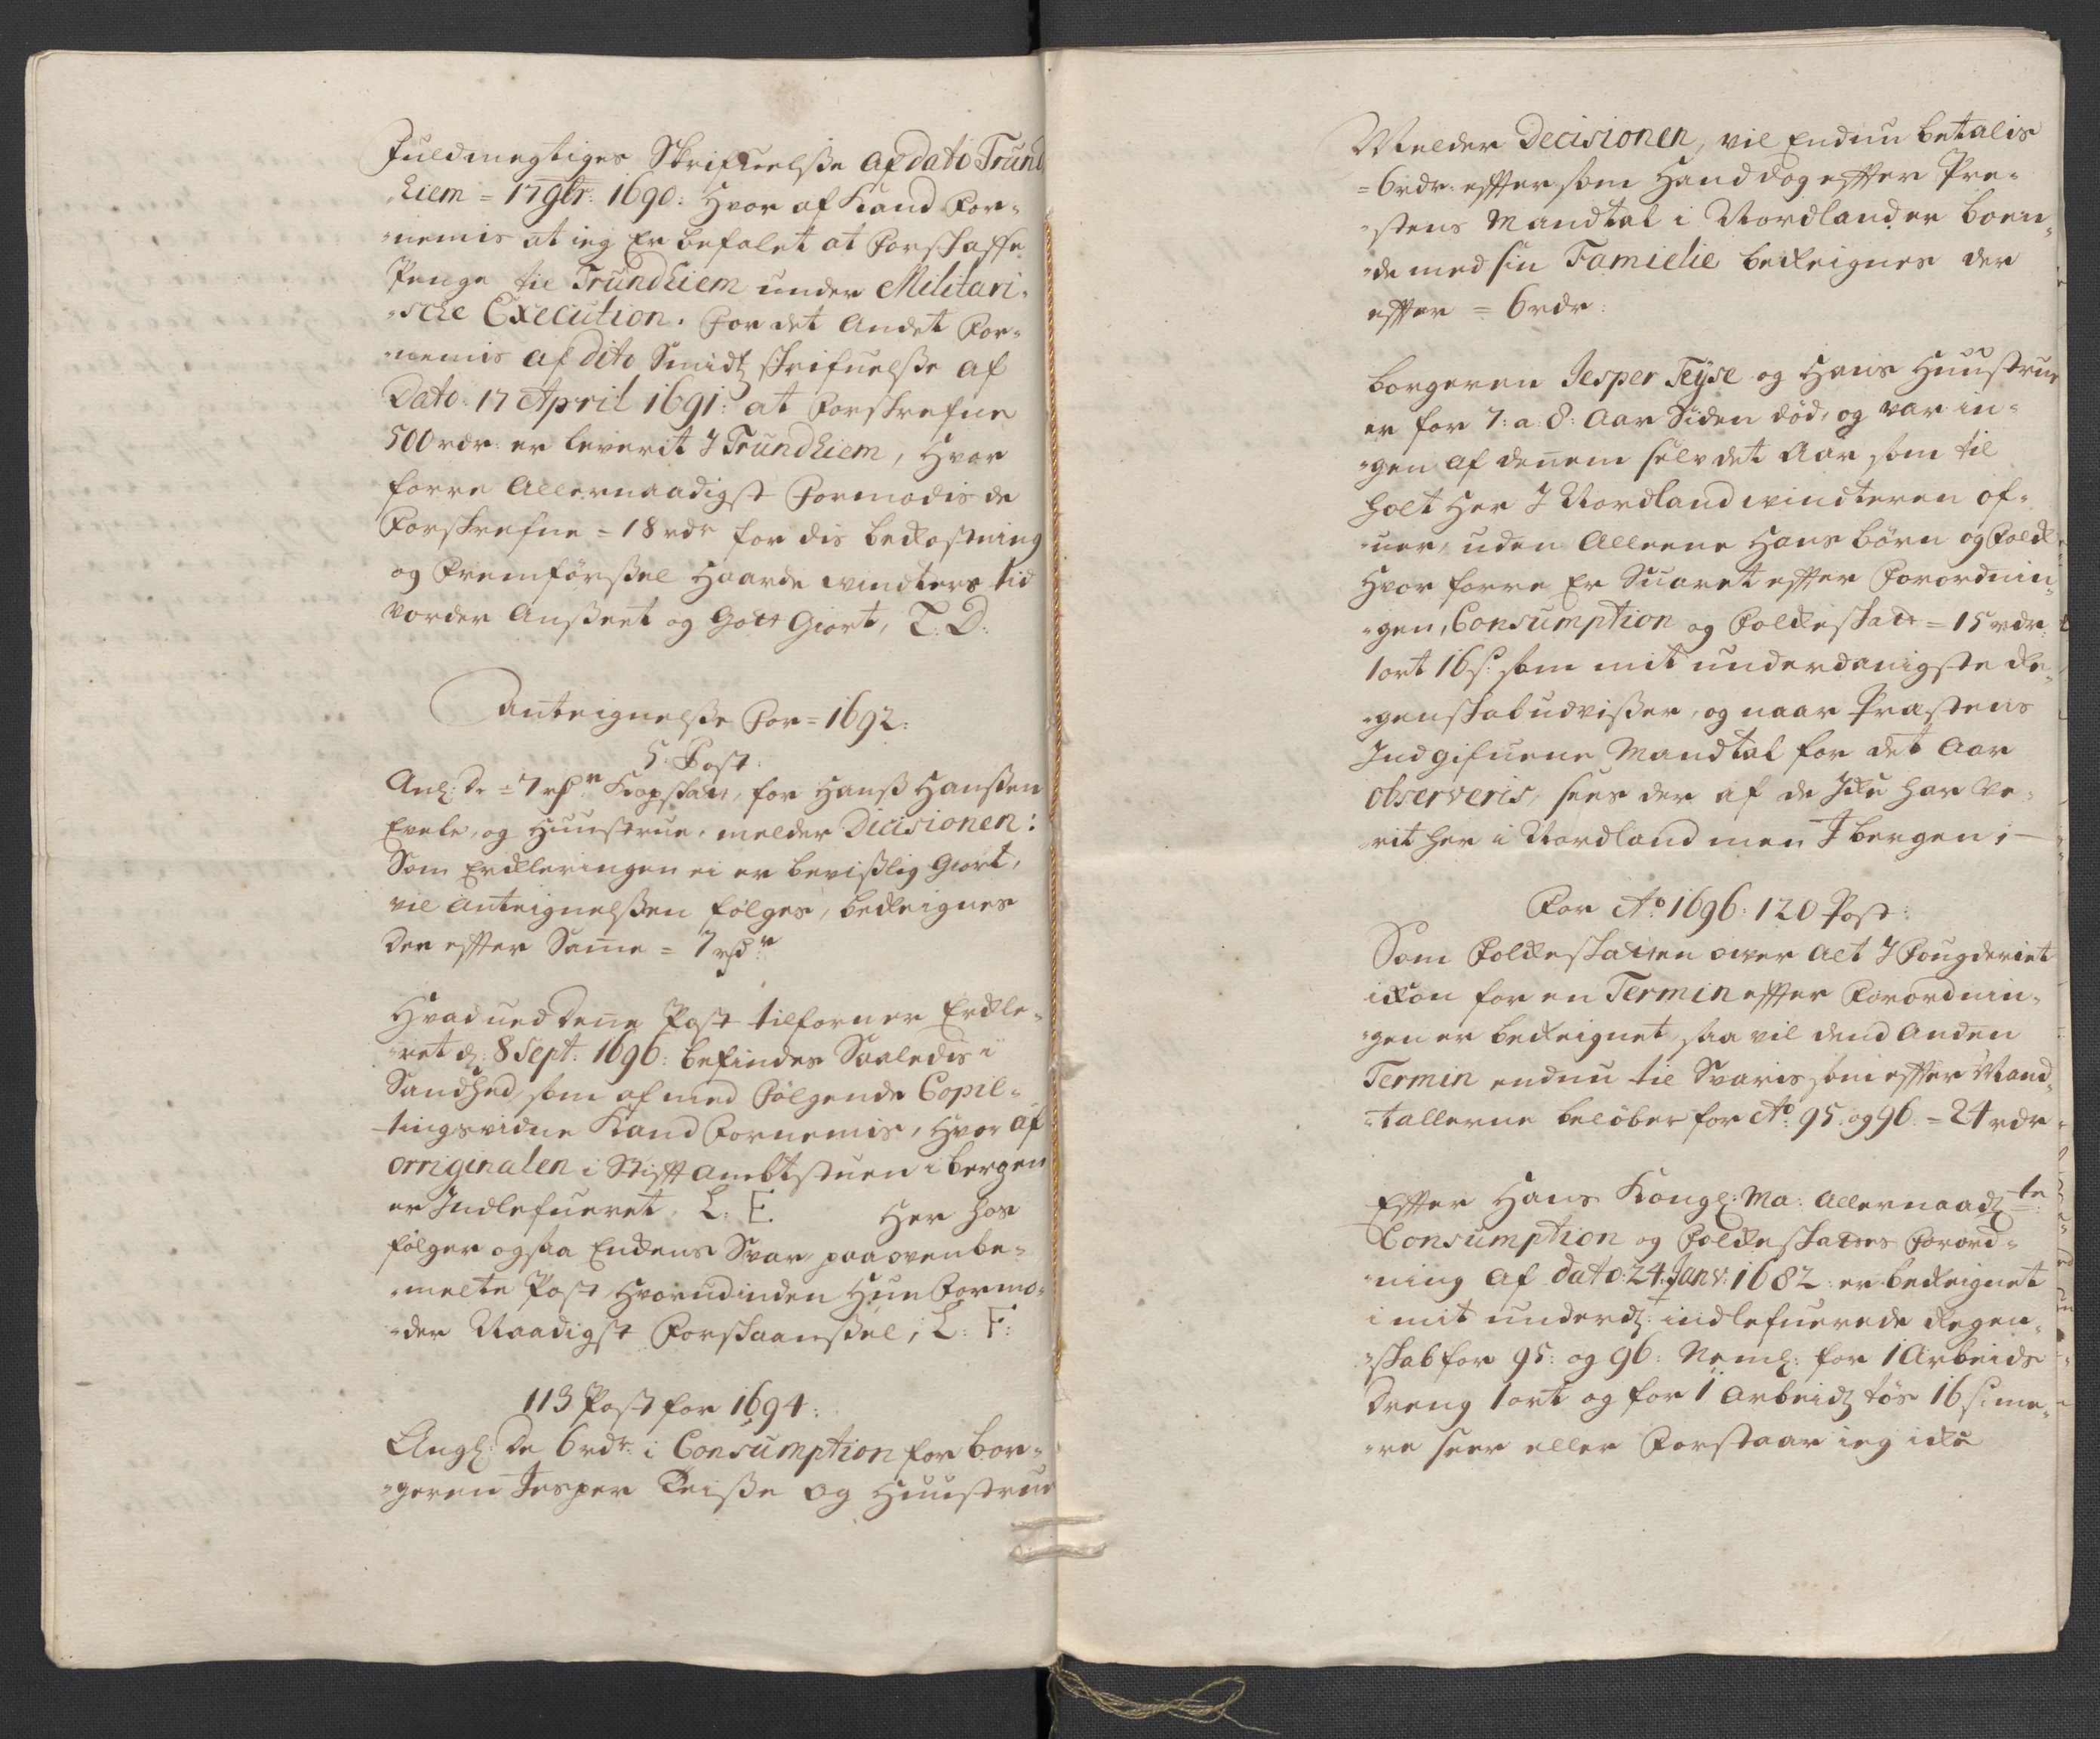 Fuldmegtiges Skriffuelsse af dato Trund
hiem = 17 9br: 1690: Hvor af Kand For-
nemis at ieg Er befalet at forskaffe
Penge til Trundhiem under Militari-
sche Execution. For det Andet For-
nemis af dito Smidtz skrifuelsse af
Dato 17 April 1691: at forskrefne
500 rdr: er leverit J Trundhiem, Hvor
forre Allernaadigst Formodis de
Forskrefne = 18 rdr for dis bekostning
og fremførssel Haarde vindters tid
vorder Ansseet og Gott Giort, L. D:
Anteignelsse For = 1692:
5. Post:
Anl: de = 7 rdr Kopskatt, for Hanss Hanssen
Evele, og Huustrue, melder Dicisionen:
Som Erckleringen ei er bevisslig Giort,
vil Anteignelssen følges, bereignes
der effter Same = 7 rdr
Hvad ved Denne Post tilforn er Erckle-
ret d: 8 Sept: 1696: befindes Saaledis i
Sandhed, som af med følgende Copie
tingsvidne Kand Fornemis, Hvor af
orriginalen i Stifft Ambtstuen i bergen
er Jndlefueret, L: E. Her hos
følger ogsaa Enckens Svar paa ovenbe-
melte Post Hvorudinden Hun Formo-
der Naadigst Forskaanssel; L: F:
113 Post for 1694:
Angl: de 6 rdr: i Consumption for bor-
geren Jesper Teisse og Huustrue
Melder Decisionen, vil Endnu betalis
= 6 rdr: effter som Hand dog effter Pre-
stens Mandtal i Nordlander boen-
de med sin Familie bereignes der
effter = 6 rdr:
borgeren Jesper Teyse og Hans Huustrue
er for 7: a 8: Aar Siden død, og var in-
gen af denem selv det Aar som til
holt Her J Nordland vindteren of-
uer, uden Alleene Hans børn og Folck
Hvor forre Er Suaret effter Forordnin-
gen, Consumption og Folckeskatt = 15 rdr:
1 ort 16 s: som mit underdanigste Re-
genskab udvisser, og naar Præstens
Indgifuene Mandtal for det Aar
observeris, sees der af de Jcke har ve-
rit her i Nordland men J bergen;
For Ao 1696: 120 Post:
Som Folckeskatten over alt J Fougderiet
ickon for en Termin effter Forordnin-
gen er bereignet, saa vil dend Anden
Termin endnu til Svaris som effter Mand-
tallerne beløber for Ao: 95. og 96 = 24 rdr
Effter Hans Kongl: Ma: Allernaadz-te:
Consumption og Folckeskattes Forord-
ning Af Dato: 24. Janv: 1682: er bereignet
i mit underdz: indlefuerede Regen-
skab for 95: og 96: Neml: for 1 Arbeids
Dreng 1 ort og for 1 Arbeidz tøs 16 s: me-
re seer eller Forstaar ieg icke